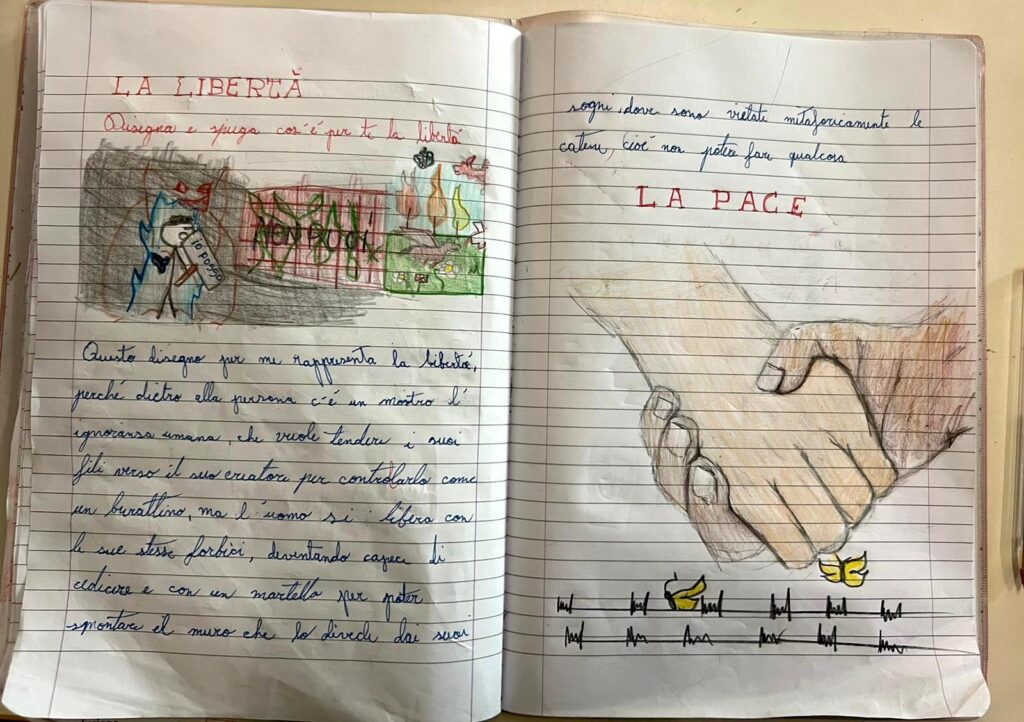 LA LIBERTÀ
Disegna e spiega cos'è per te la libertà
NON PUOI
Io posso
Questo disegno per me rappresenta la libertà,
perché dietro alla persona c'è un mostro l'
ignoransa umana, che vuole tendere i suoi
fili verso il suo creatore per controllarlo come
un burattino, ma l'uomo si libera con
le sue stesse forbici, deventando capeci di
cidicere e con un martello per poter
spontare el muro che lo divede dai suoi
sogni, dove sono vietate mitaforicamente le
catene, cioè non potere far qualcosa
LA PACE